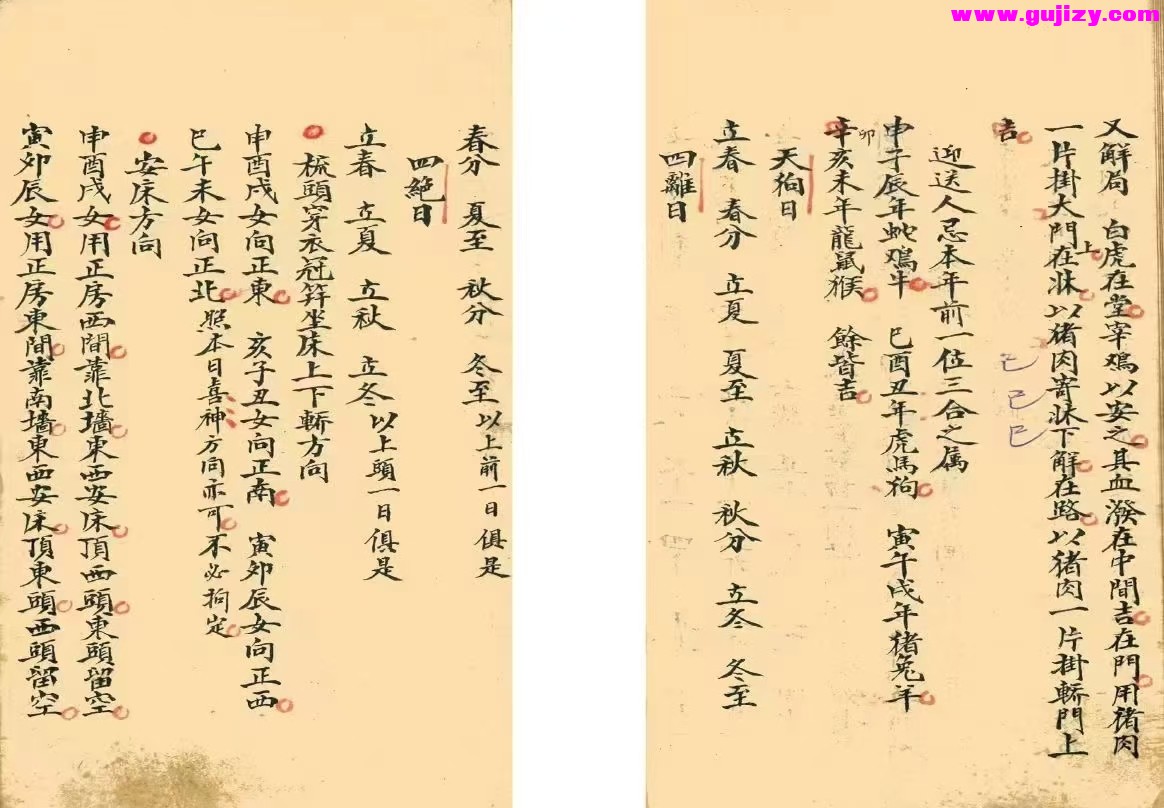 www.gujizy.com
又解局 白虎在堂宰鳮以安之其血潑在中間吉在門用猪肉
一片掛大門上在牀以猪肉寄牀下解在路以猪肉一片掛轎門上
吉
迎送人忌本年前一位三合之属
申子辰年蛇鳮牛 巳酉丑年虎馬狗 寅午戌年猪兔羊
辛卯亥未年龍鼠猴 餘皆吉
天狗日
立春 春分 立夏 夏至 立秋 秋分 立冬 冬至
四離日
春分 夏至 秋分 冬至以上前一日俱是
四絕日
立春 立夏 立秋 立冬以上頭一日俱是
梳頭穿衣冠笄坐床上下轎方向
申酉戌女向正東 亥子丑女向正南 寅卯辰女向正西
巳午未女向正北照本日喜神方向亦可不必拘定
安床方向
申酉戌女用正房西間靠北墻東西安床頂西頭東頭留空
寅卯辰女用正房東間靠南墻東西安床頂東頭西頭留空